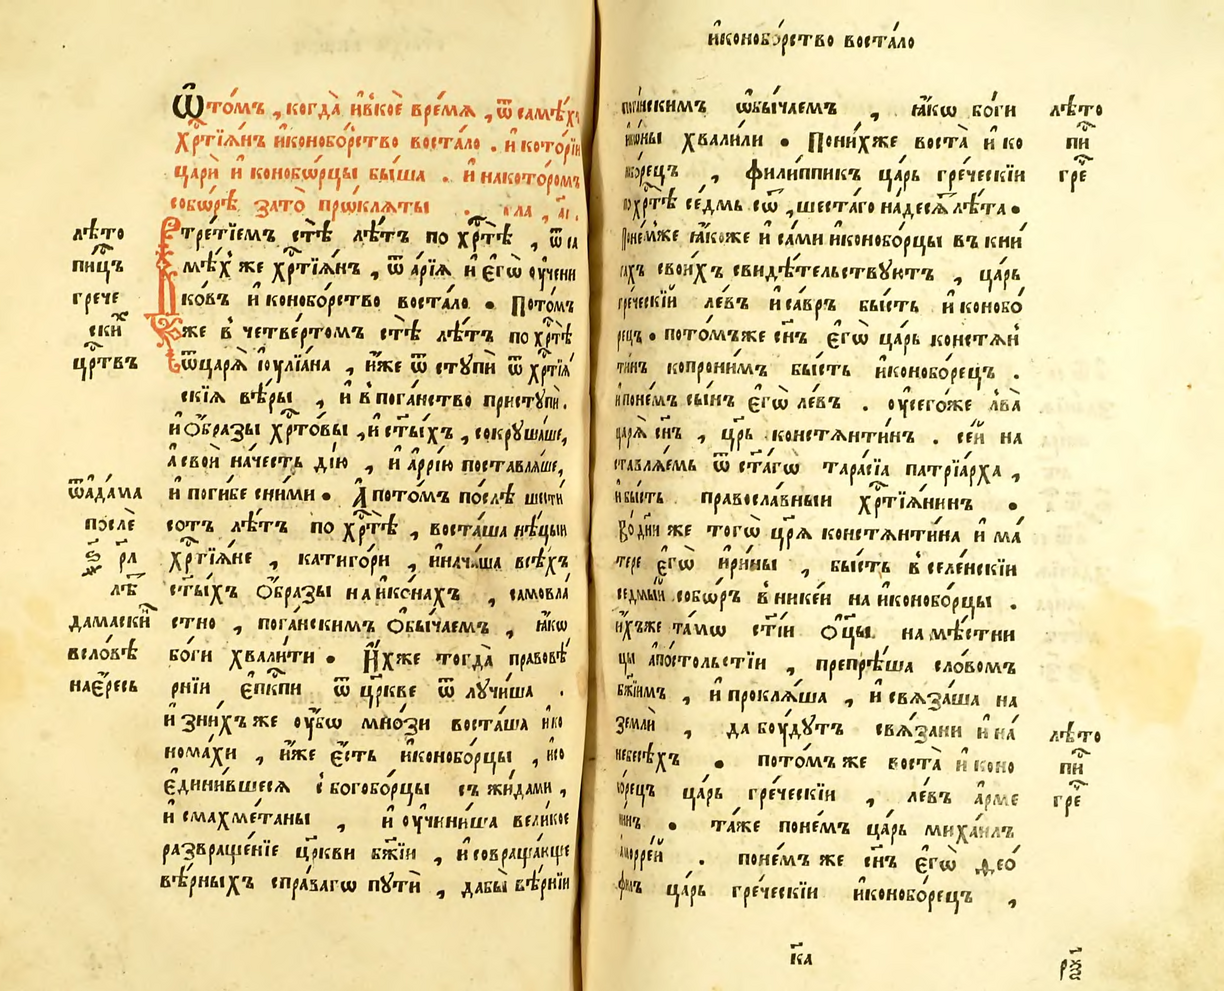 Ѿто́мъ , когда̀ и҆в̾коѐ вре́мѧ , ѿ самѣ́хъ
Хрⷭ҇тїѧ́нъ и҆конобо́рство воста́ло . и҆ кото́рїи
цари̑ и҆ конобѡ́рцы бы́ша . и҆ накото́ромъ
собѡ́рѣ зато̀ прѡ́клѧты . гла , а҃і .
лѣ́то
пи́цⷭ҇ъ
грече
скиⷯ
црⷭ҇твъ
третїемъ ст҃ѣ лѣ́тъ по хрⷭ҇тѣ̀ , ѿ са
мѣ́х же хрⷭ҇тїѧ́нъ , ѿ а҆рі́ѧ и҆ є҆гѡ̀ ᲂу҆чени
кѡ́въ и҆ конобо́рство воста́ло . Пото́мъ
же в̾ четве́ртомъ ст҃ѣ лѣ́тъ по хрⷭ҇тѣ̀
ѿцарѧ̀ і҆ꙋлїа́на , и҆́же ѿ стꙋпѝ ѿ хрⷭ҇тїѧ́
скїѧ вѣ́ры , и҆ в̾пога́нство пристꙋпѝ .
и҆ ѻ҆́бразы хрⷭ҇то́вы , и҆ ст҃ы́хъ , сокрꙋша́ше ,
а҆ свои̑ на́честь ді́ю , и҆ а҆ррі́ю поставлѧ́ше ,
и҆ поги́бе сни́ми . А҆ пото́мъ по́слѣ шести́
ѿа҆да́ма
по́слѐ
лѣⷮ
сотъ лѣ́тъ по хрⷭ҇тѣ̀ , воста́ша нѣ́цыи
хрⷭ҇тїѧ́не , катиго́ри , и҆нача́ша всѣ́хъ
ст҃ы́хъ ѻ҆́бразы наи҆ко́нахъ , самовла́
дамаскиⷩ҇
всло́вѣ
нає҆́ресь
стно , пога́нскимъ ѻ҆бы́чаемъ , ꙗ҆́кѡ
бо́ги хвали́ти . И҆́хже тогда̀ правовѣ́
рнїи є҆пⷭ҇кпи ѿ цр҃кве ѿ лꙋчи́ша .
и҆ зни́хъ же ᲂу҆́бѡ мно́зи воста́ша и҆ко
нома́хи , и҆́же є҆́сть и҆конобо́рцы , и҆со
є҆дини́вшесѧ с̾ богобо́рцы съ жи́дами ,
и҆ смахме́таны , и҆ ᲂу҆чини́ша вели́кое
развраще́нїе цр҃кви бж҃їи , и҆ совраща́юще
вѣ́рныхъ спра́вагѡ пꙋтѝ , дабы̀ вѣ́рнїи
и҆конобо́рство воста́ло
пога́нскимъ ѡ҆бы́чаемъ , ꙗ҆́кѡ бо́ги
и҆ко́ны хвали́ли . Пони́хже воста̀ и҆ ко
нобо́рецъ , фили́ппикъ ца́рь гре́ческїи
по хрⷭ҇тѣ̀ се́дмь сѡ́тⷮ , шеста́го надесѧ́тⷮ лѣ́та .
лѣ́то
пиⷭ҇
греⷱ҇
Поне́мже ꙗ҆́коже и҆ са́ми и҆конобо́рцы въ кни́
гахъ свои́хъ свидѣ́тельствꙋютъ , ца́рь
гре́ческїй ле́въ и҆са́връ бы́сть и҆ конобо́
рецъ . пото́мъже сн҃ъ є҆гѡ̀ ца́рь констѧ́н
ти́нъ копрони́мъ бы́сть и҆конобо́рецъ .
и҆поне́мъ сы́нъ є҆гѡ̀ ле́въ . ᲂу҆сего́же лва̀
царѧ̀ сн҃ъ , цр҃ь констѧнти́нъ . се́й на
ставлѧ́емь ѿ ст҃а́гѡ тара́сїа патрїа́рха ,
и҆ бы́сть правосла́вныи хрⷭ҇тїѧ́нинъ .
Во дни̑ же тогѡ̀ цр҃ѧ̀ констѧнти́на и҆ ма́
тере є҆гѡ̀ и҆ри́ны , бы́сть в̾селе́нскїи
седмы́й собѡ́ръ в̾нике́и на и҆конобо́рцы .
и҆́хъже та́мѡ ст҃і́и ѻ҆ц҃ы̀ намѣ́стни
цы а҆по́стольстїи , препрѣ́ша сло́вомъ
бж҃їимъ , и҆ проклѧ́ша , и҆ свѧза́ша на
землѝ , да бᲂу́дꙋтъ свѧ́зани и҆ на́
небесѣ́хъ . пото́мъ же воста̀ и҆ коно
бо́рецъ ца́рь гре́ческїи , ле́въ а҆рме
ни́нъ . та́же поне́мъ ца́рь михаи́лъ
лѣ́то
пиⷭ҇
греⷱ҇
а҆морре́й . поне́мъ же сн҃ъ є҆гѡ̀ ѳео́
филъ ца́рь гре́ческїи и҆конобо́рецъ ,
к҃а